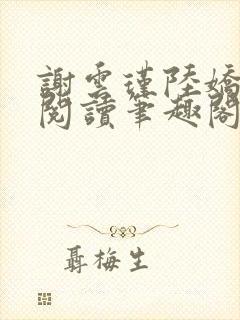 謝雲瑾陸嬌
閱讀筆趣閣
聶梅生